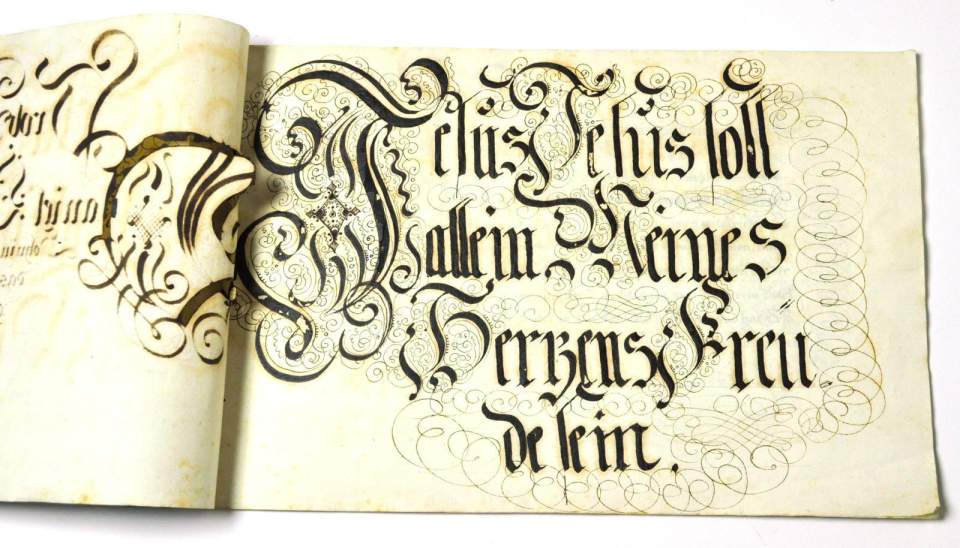 Jesus Jesus soll
allein Meines
Herzens Freu
de sein.